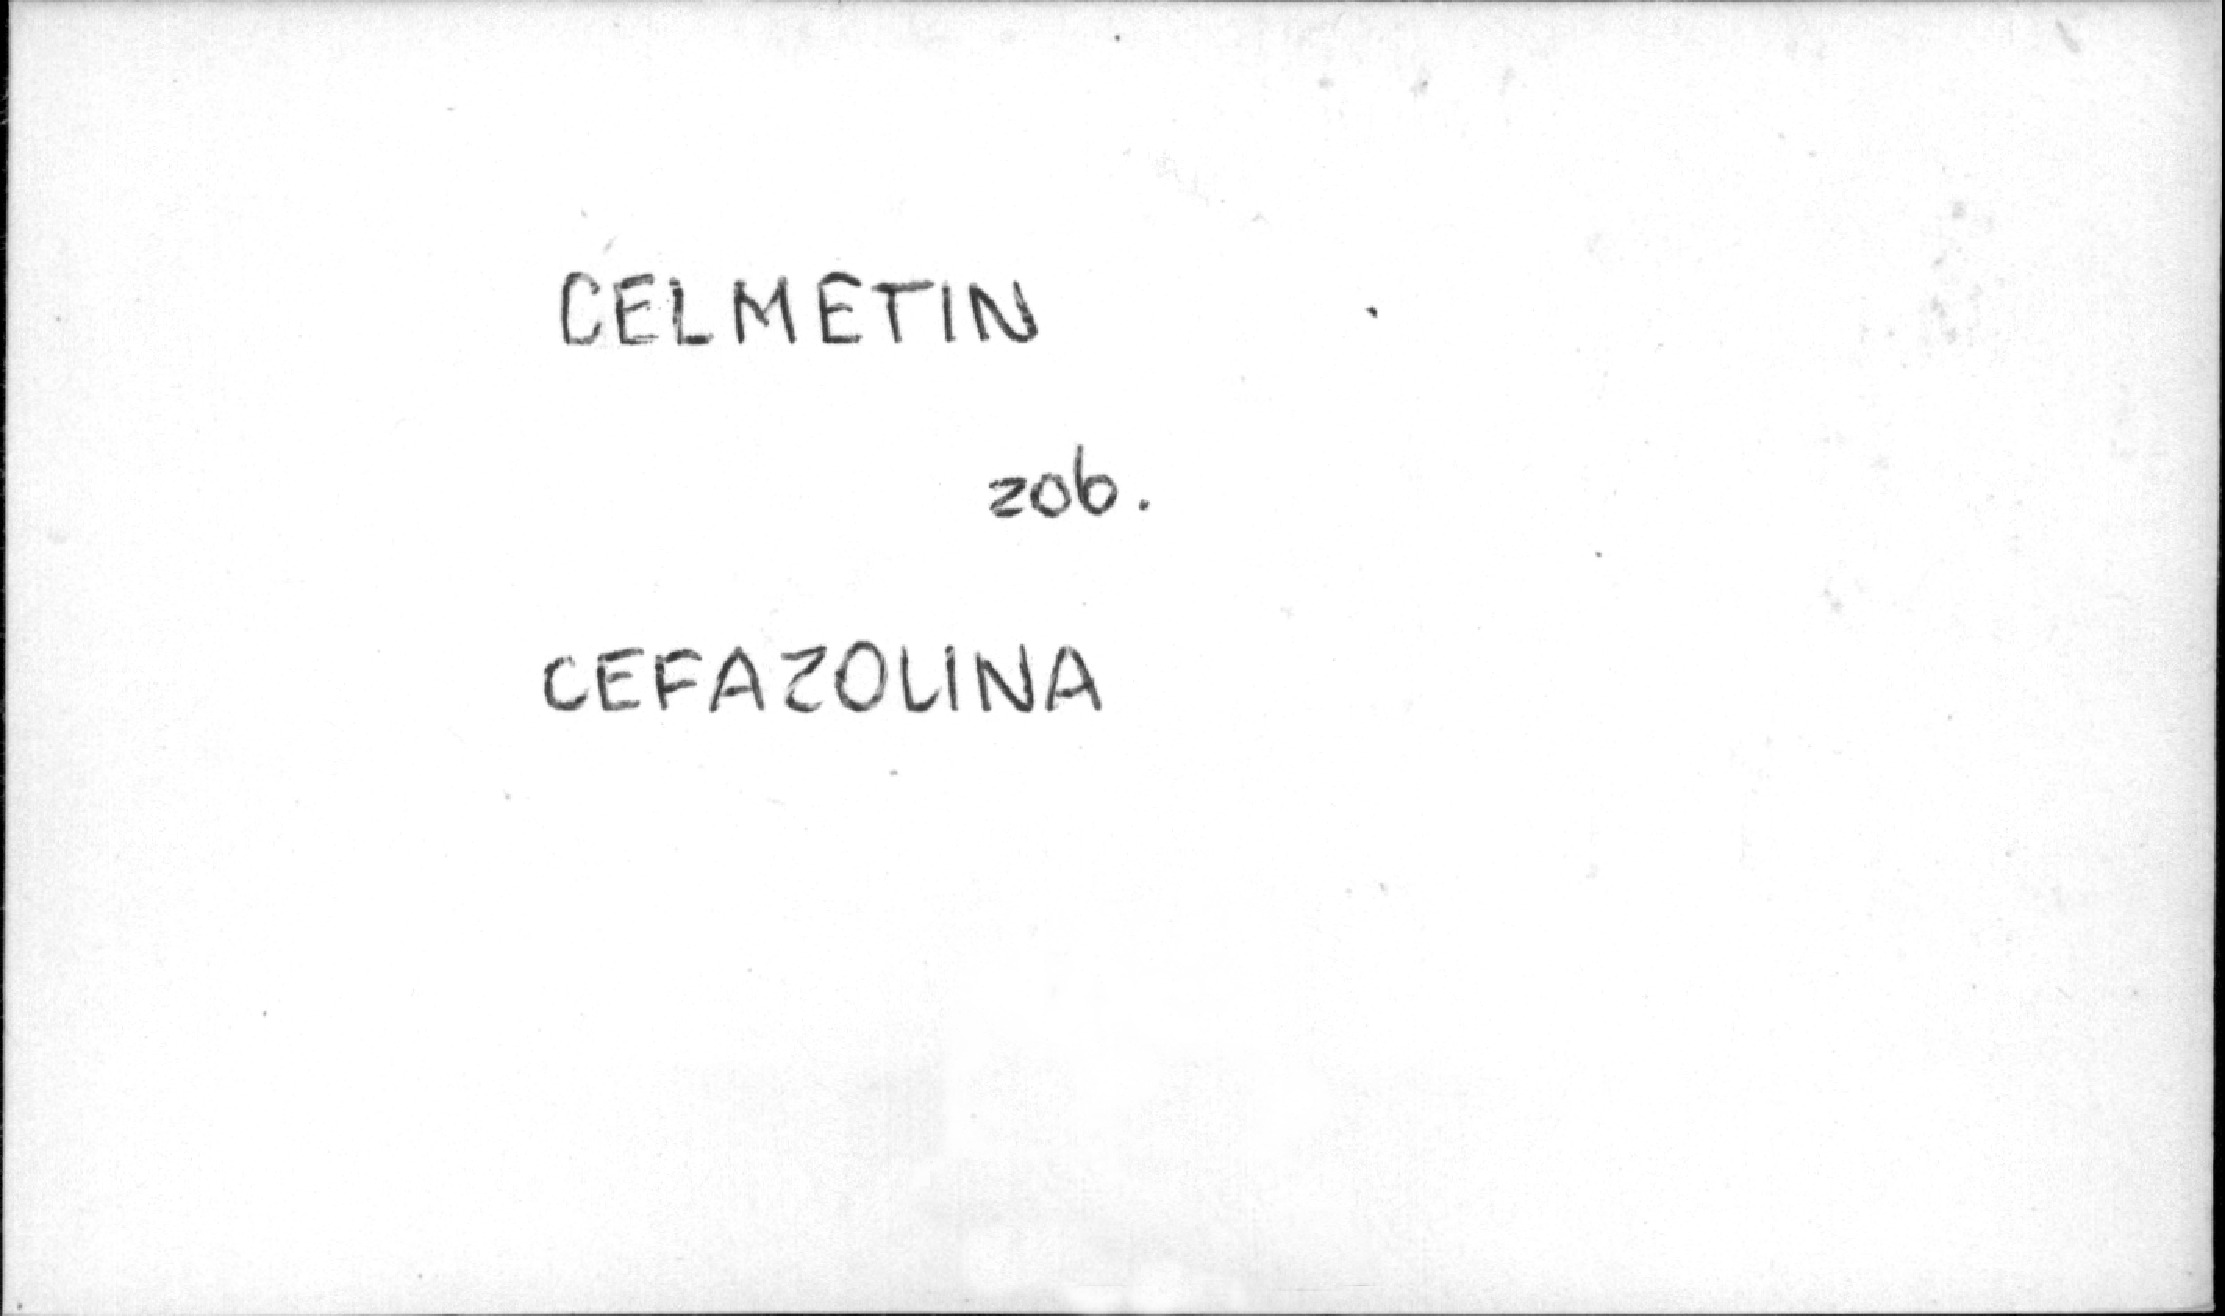 CELMETIN
zob.
CEFAZOLINA